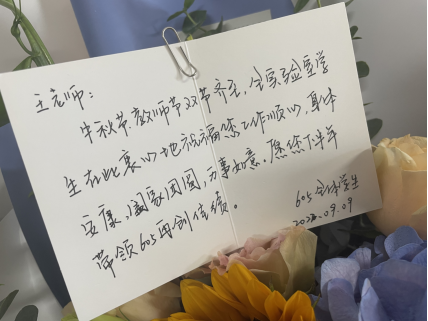 王老师：
中秋节、教师节双节齐至，全实验室学
生在此衷心地祝福您工作顺心，身体
安康，阖家团圆，万事如意。愿您下半年
带领605再创佳绩。
605全体学生
2022.09.09